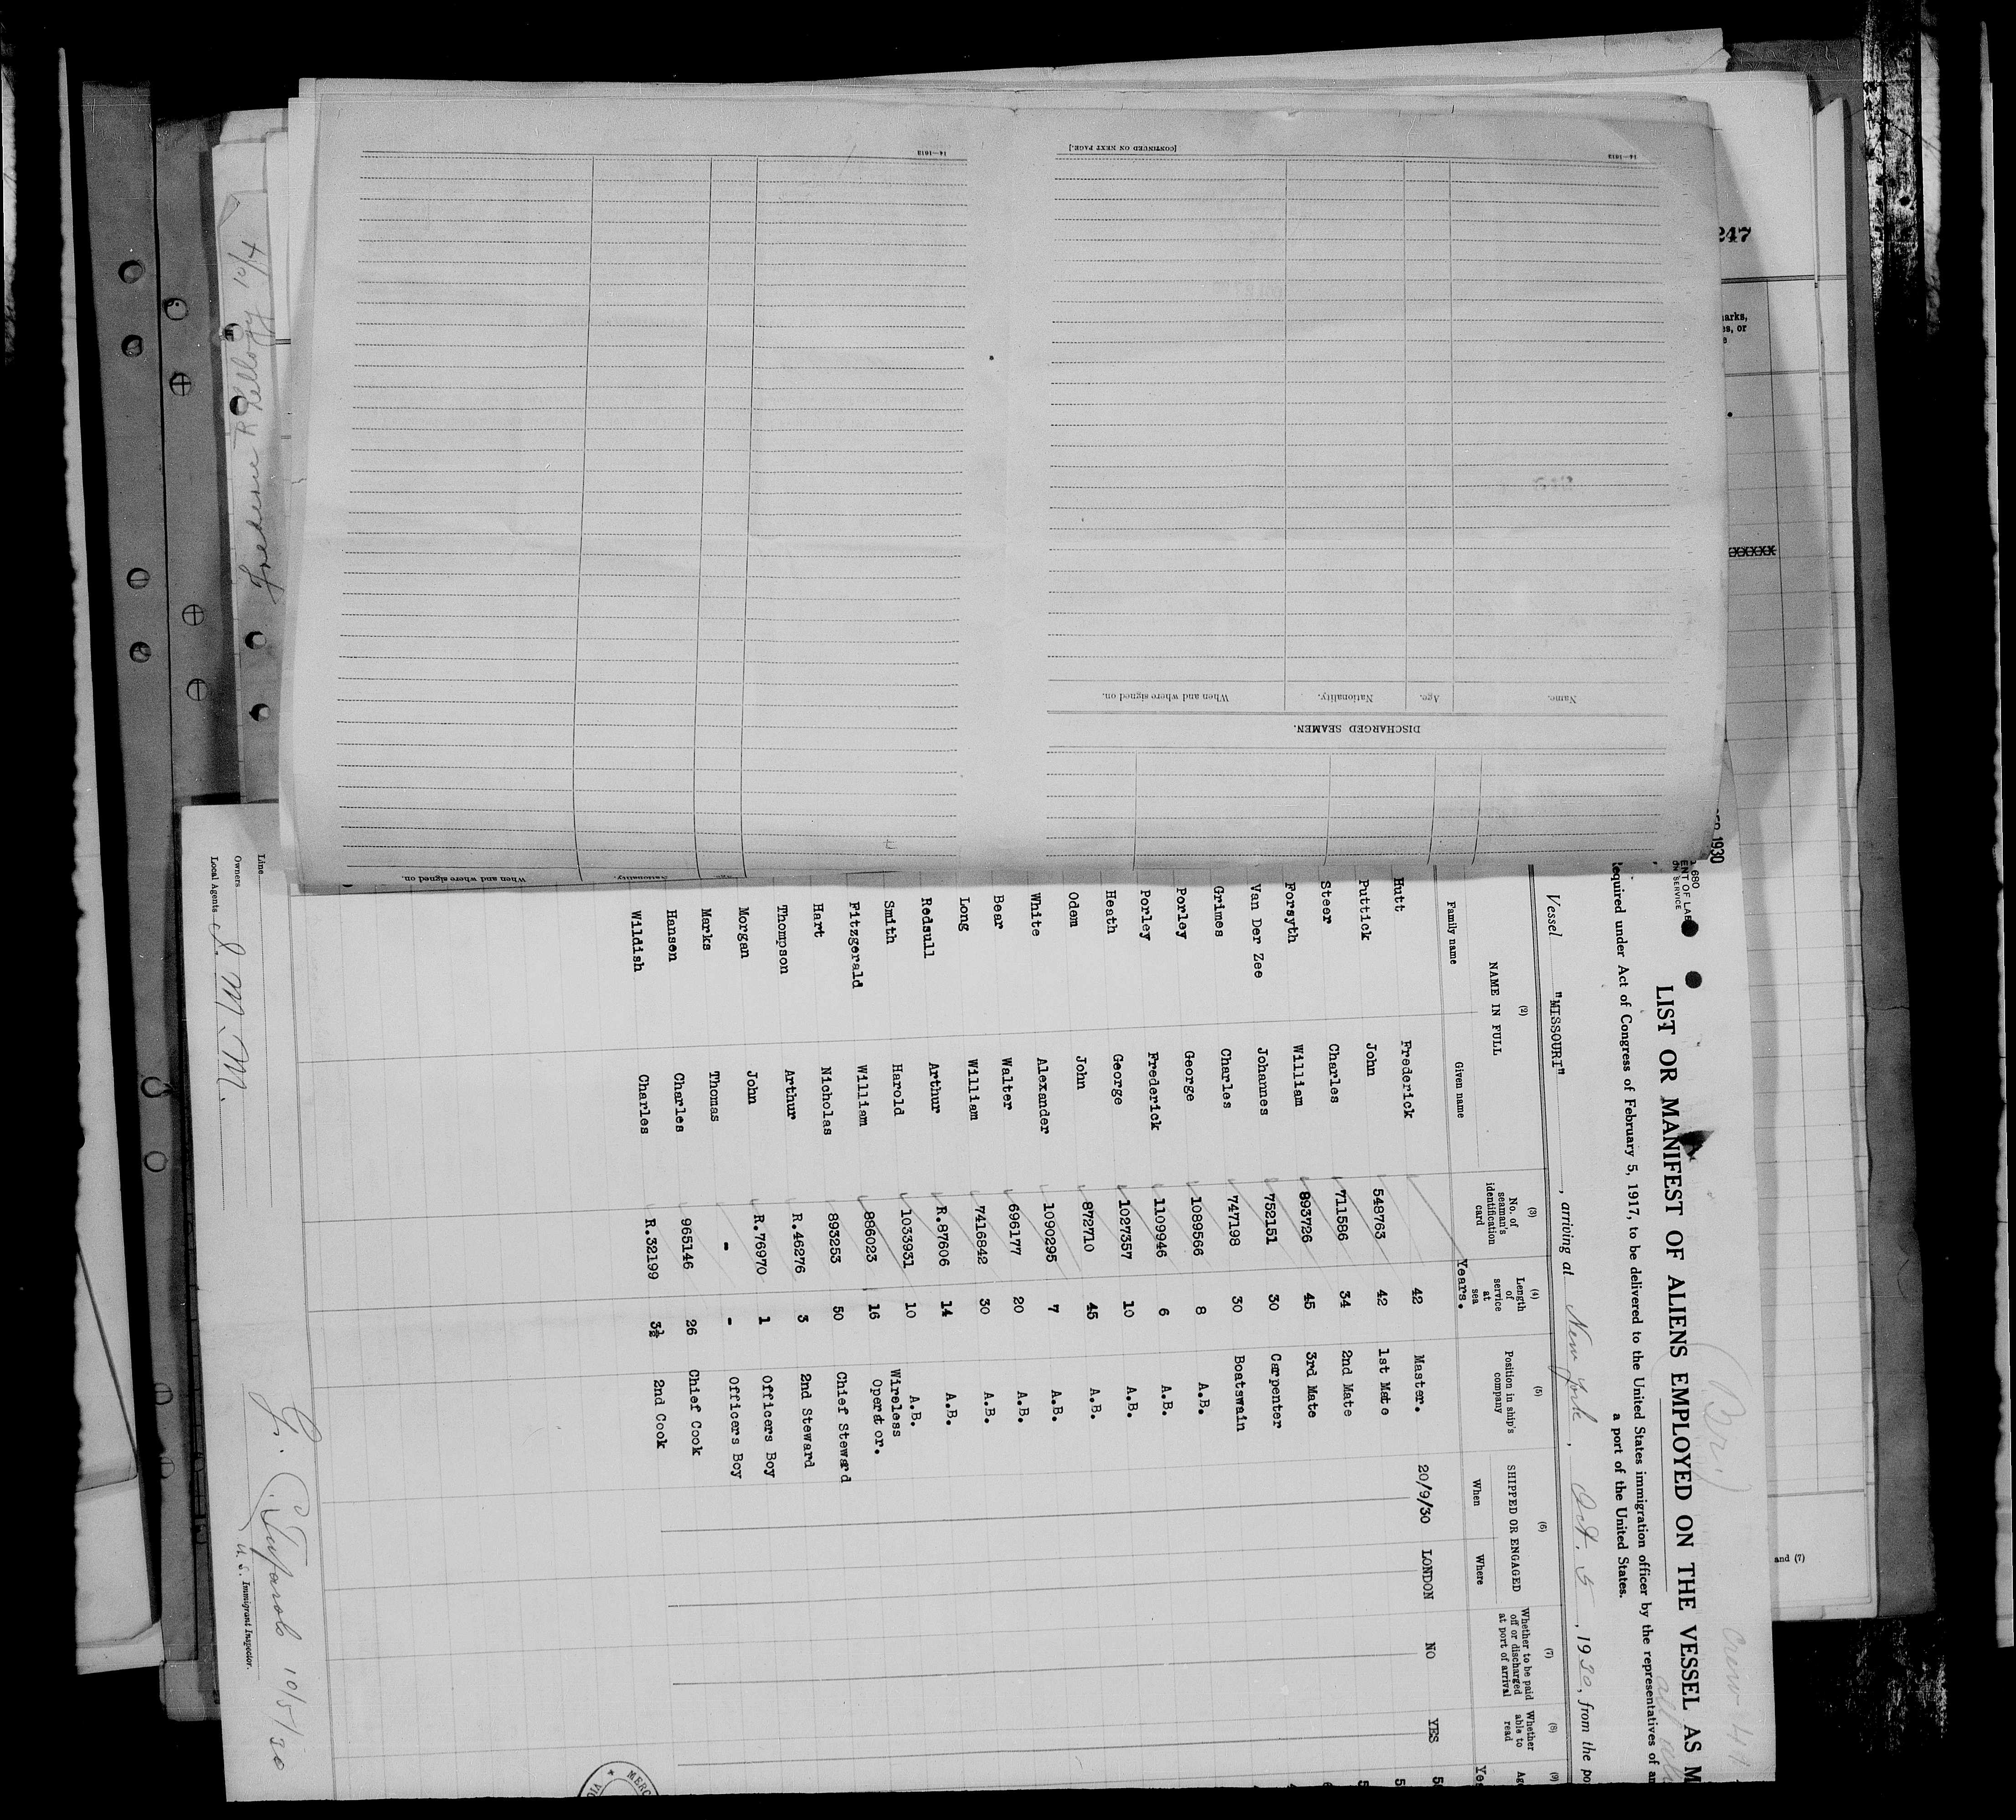 14—1613
[CONTINUED ON NEXT PAGE.]
14—1613
When and where signed on.
Nationality.
Age.
Name.
DISCHARGED SEAMEN.
When and where signed on.
Nationality.
Age.
247
arks,
es, or
e
XXXXXX
1930
and (7)
10/4
680
ENT OF LAB
ON SERVICE
LIST OR MANIFEST OF ALIENS EMPLOYED ON THE VESSEL AS M
Required under Act of Congress of February 5, 1917, to be delivered to the United States immigration officer by the representatives of an
a port of the United States.
Crew 41
Vessel "MISSOURI", arriving at New York, Oct. 5, 1930, from the po
(2) (3) (4) (5) (6) (7) (8) (9)
NAME IN FULL
Family name
Given name
No. of seaman's identification card
Length of service at sea
Position in ship's company
SHIPPED OR ENGAGED
When
Where
Whether to be paid off or discharged at port of arrival
Whether able to read
Ag
Years.
Ye
Hutt Frederick 42 Master. 20/9/30 LONDON NO YES 5
Puttick John 548763 42 1st Mate 5
Steer Charles 711586 34 2nd Mate
Forsyth William 893726 45 3rd Mate
Van Der Zee Johannes 752151 30 Carpenter
Grimes Charles 747198 30 Boatswain
Porley George 1089566 8 A.B.
Porley Frederick 1109946 6 A.B.
Heath George 1027357 10 A.B.
Odem John 872710 45 A.B.
White Alexander 1090295 7 A.B.
Bear Walter 696177 20 A.B.
Long William 7416842 30 A.B.
Redsull Arthur R.87606 14 A.B.
Smith Harold 1033931 10 A.B.
Fitzgerald William 886023 16 Wireless Operator.
Hart Nicholas 893253 50 Chief Steward
Thompson Arthur R.46276 3 2nd Steward
Morgan John R.76970 1 Officers Boy
Marks Thomas - - Officers Boy
Hansen Charles 965146 26 Chief Cook
Wildish Charles R.32199 3½ 2nd Cook
MERC
Line
Owners
Local Agents I. M. M.
10/5/30
U. S. Immigrant Inspector.